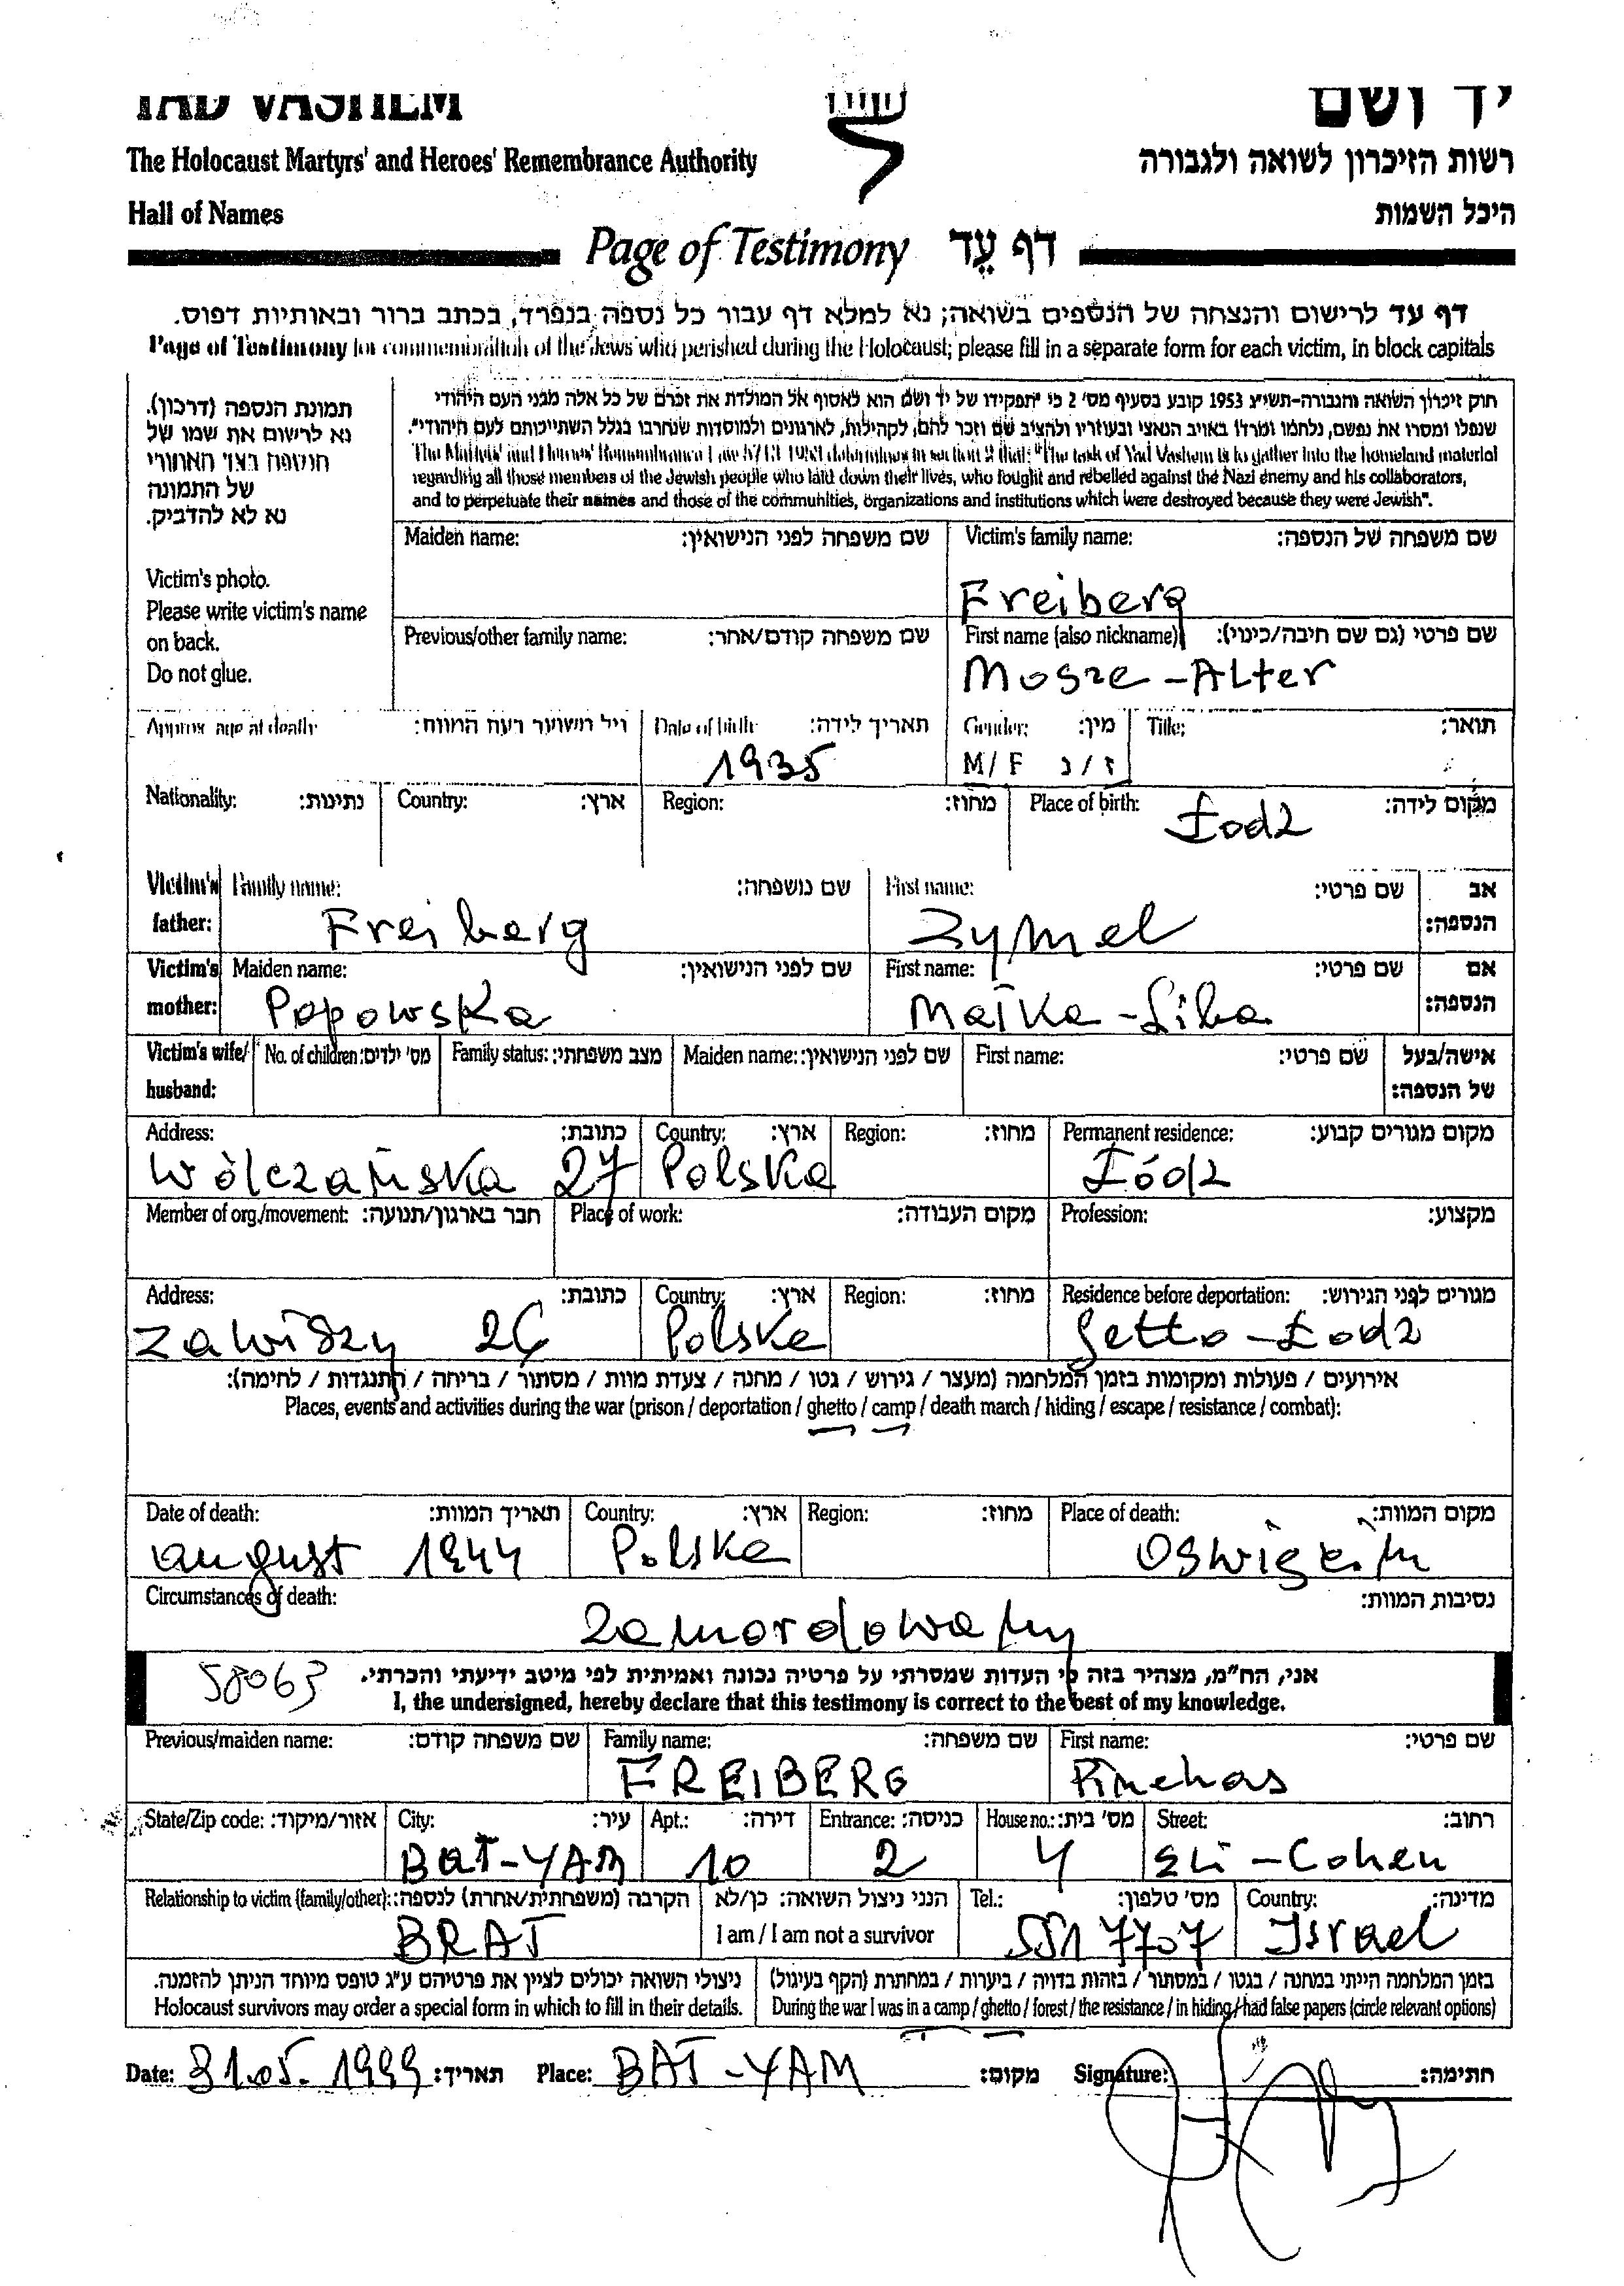 YAD VASHEM יד ושם
The Holocaust Martyrs' and Heroes' Remembrance Authority רשות הזיכרון לשואה ולגבורה
Hall of Names היכל השמות
Page of Testimony דף עֵד
דף עד לרישום והנצחה של הנספים בשואה; נא למלא דף עבור כל נספה בנפרד, בכתב ברור ובאותיות דפוס.
Page of Testimony for commemoration of the Jews who perished during the Holocaust; please fill in a separate form for each victim, in block capitals
תמונת הנספה (דרכון).
נא לרשום את שמו של
הנספה בצד האחורי
של התמונה
נא לא להדביק.
Victim's photo.
Please write victim's name
on back.
Do not glue.
חוק זיכרון השואה והגבורה-תשי"ג 1953 קובע בסעיף מס' 2 כי "תפקידו של יד ושם הוא לאסוף אל המולדת את זכרם של כל אלה מבני העם היהודי
שנפלו ומסרו את נפשם, נלחמו ומרדו באויב הנאצי ובעוזריו ולהציב שם וזכר להם, לקהילות, לארגונים ולמוסדות שנחרבו בגלל השתייכותם לעם היהודי".
The Martyrs' and Heroes' Remembrance Law 5713-1953 determines in section 2 that: "The task of Yad Vashem is to gather into the homeland material
regarding all those members of the Jewish people who laid down their lives, who fought and rebelled against the Nazi enemy and his collaborators,
and to perpetuate their names and those of the communities, organizations and institutions which were destroyed because they were Jewish".
Maiden name: שם משפחה לפני הנישואין: Victim's family name: שם משפחה של הנספה:
Freiberg
Previous/other family name: שם משפחה קודם/אחר: First name (also nickname): שם פרטי (גם שם חיבה/כינוי):
Mosze-Alter
Approx. age at death: גיל משוער בעת המוות: Date of birth: תאריך לידה: Gender: מין: Title: תואר:
1935 M/F ז/נ
Nationality: נתינות: Country: ארץ: Region: מחוז: Place of birth: מקום לידה:
Łodz
Victim's father: Family name: שם משפחה: First name: שם פרטי: אב הנספה:
Freiberg Zymel
Victim's mother: Maiden name: שם לפני הנישואין: First name: שם פרטי: אם הנספה:
Popowska Malka-Liba
Victim's wife/husband: No. of children: מס' ילדים: Family status: מצב משפחתי: Maiden name: שם לפני הנישואין: First name: שם פרטי: אישה/בעל של הנספה:
Address: כתובת: Country: ארץ: Region: מחוז: Permanent residence: מקום מגורים קבוע:
Wólczańska 27 Polska Łódz
Member of org./movement: חבר בארגון/תנועה: Place of work: מקום העבודה: Profession: מקצוע:
Address: כתובת: Country: ארץ: Region: מחוז: Residence before deportation: מגורים לפני הגירוש:
Zawiszy 26 Polska Getto-Łodz
אירועים / פעולות ומקומות בזמן המלחמה (מעצר / גירוש / גטו / מחנה / צעדת מוות / מסתור / בריחה / התנגדות / לחימה):
Places, events and activities during the war (prison / deportation / ghetto / camp / death march / hiding / escape / resistance / combat):
Date of death: תאריך המוות: Country: ארץ: Region: מחוז: Place of death: מקום המוות:
august 1944 Polska
Circumstances of death: נסיבות המוות:
Zamordowany
58063 אני, הח"מ, מצהיר בזה כי העדות שמסרתי על פרטיה נכונה ואמיתית לפי מיטב ידיעתי והכרתי.
I, the undersigned, hereby declare that this testimony is correct to the best of my knowledge.
Previous/maiden name: שם משפחה קודם: Family name: שם משפחה: First name: שם פרטי:
FREIBERG Pinchas
State/Zip code: אזור/מיקוד: City: עיר: Apt.: דירה: Entrance: כניסה: House no.: מס' בית: Street: רחוב:
BAT-YAM 10 2 4 Eli-Cohen
Relationship to victim (family/other): הקרבה (משפחתית/אחרת) לנספה: הנני ניצול השואה: כן/לא Tel.: מס' טלפון: Country: מדינה:
BRAT I am / I am not a survivor 5517707 Israel
ניצולי השואה יכולים לציין את פרטיהם ע"ג טופס מיוחד הניתן להזמנה. בזמן המלחמה הייתי במחנה / בגטו / במסתור / בזהות בדויה / ביערות / במחתרת (הקף בעיגול)
Holocaust survivors may order a special form in which to fill in their details. During the war I was in a camp / ghetto / forest / the resistance / in hiding / had false papers (circle relevant options)
Date: 31.05.1999 תאריך: Place: BAT-YAM מקום: Signature: חתימה: